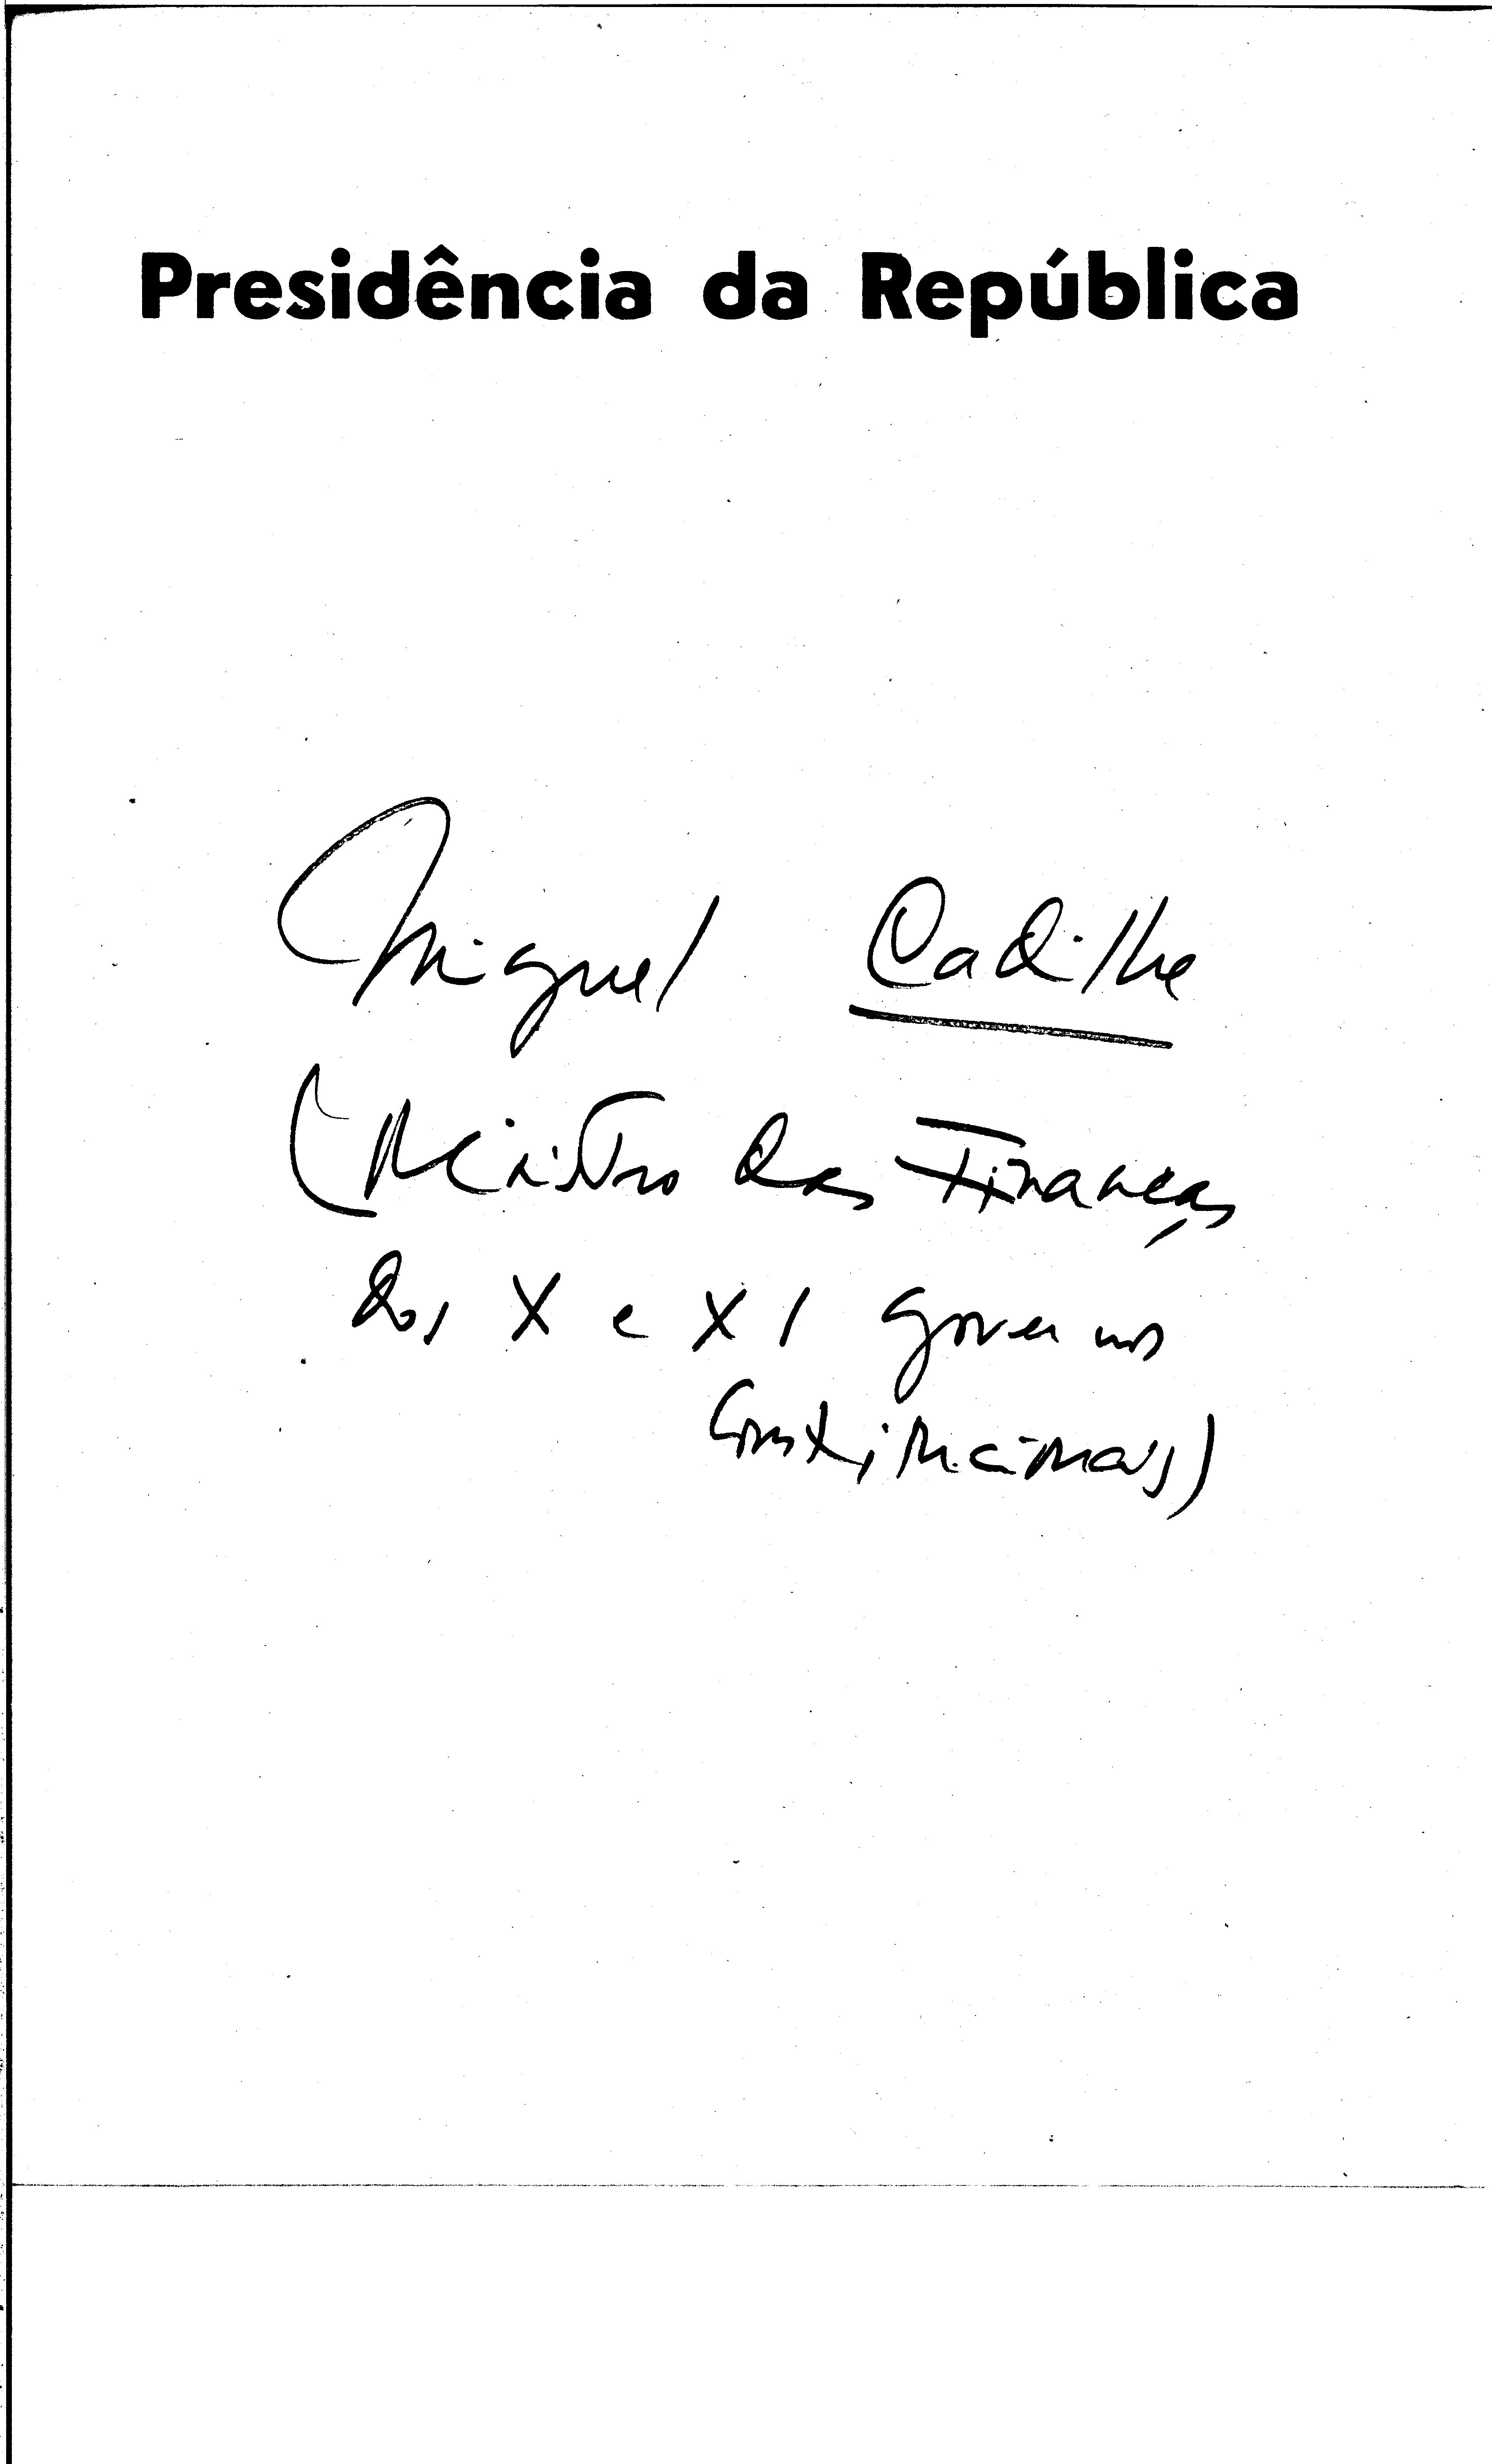 Presidência da República
Miguel Cadilhe
(Ministro das Finanças
dos X e XI governos
Constitucionais)